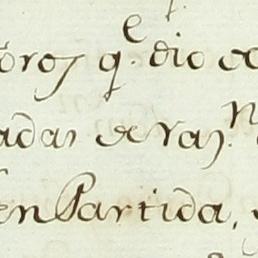 oros q.e dio
adas de raz.n
en Partida,